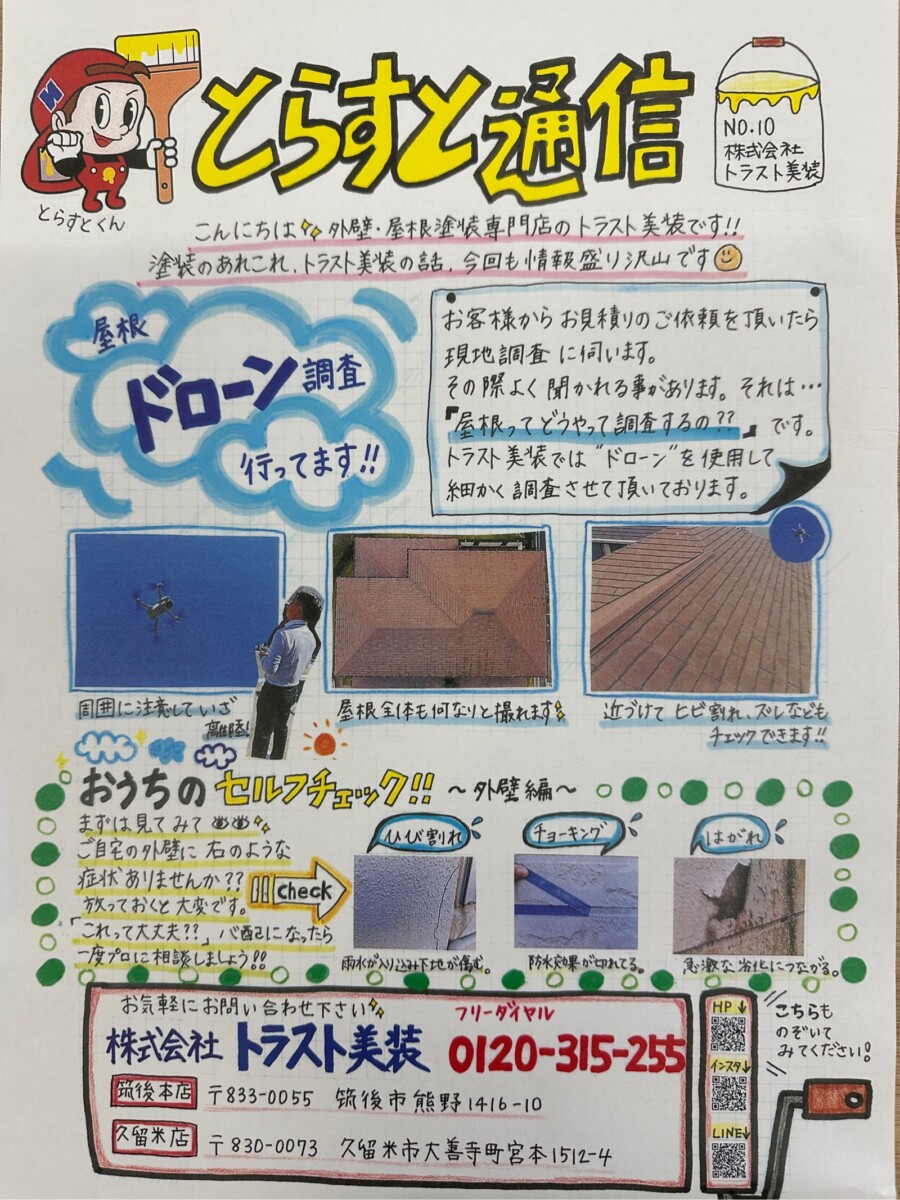 とらすと通信
NO.10
株式会社
トラスト美装
とらすとくん
こんにちは 外壁・屋根塗装専門店のトラスト美装です!!
塗装のあれこれ、トラスト美装の話、今回も情報盛り沢山です
屋根
ドローン調査
行ってます!!
お客様からお見積りのご依頼を頂いたら
現地調査に伺います。
その際よく聞かれる事があります。それは…
『屋根ってどうやって調査するの??』です。
トラスト美装では“ドローン”を使用して
細かく調査させて頂いております。
周囲に注意していざ
離陸!
屋根全体も何なりと撮れます
近づけてヒビ割れ、ズレなども
チェックできます!!
おうちのセルフチェック!! ~外壁編~
まずは見てみて
ご自宅の外壁に右のような
症状ありませんか??
放っておくと大変です。
「これって大丈夫??」心配になったら
一度プロに相談しましょう!!
check
ひび割れ
雨水が入り込み下地が傷む。
チョーキング
防水効果が切れてる。
はがれ
急激な劣化につながる。
お気軽にお問い合わせ下さい
フリーダイヤル
株式会社 トラスト美装 0120-315-255
筑後本店 〒833-0055 筑後市熊野1416-10
久留米店 〒830-0073 久留米市大善寺町宮本1512-4
HP↓
インスタ↓
LINE↓
こちらも
のぞいて
みてください!